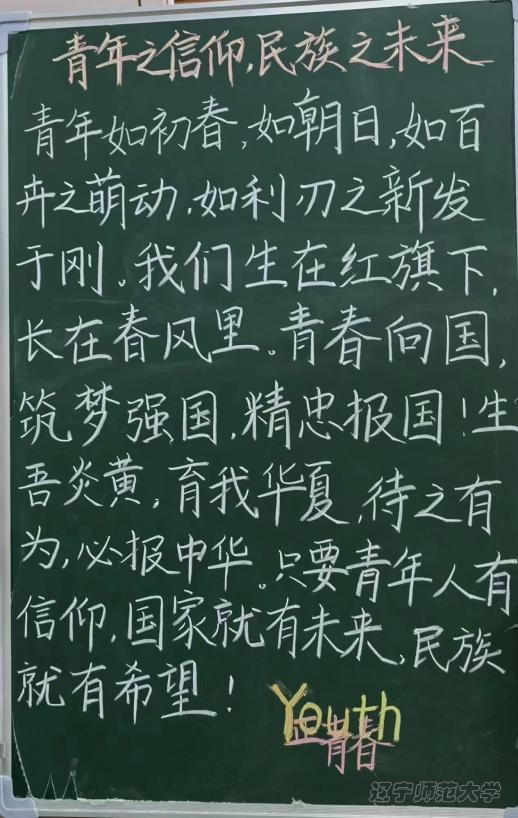 青年之信仰,民族之未来
青年如初春,如朝日,如百
卉之萌动,如利刃之新发
于刚。我们生在红旗下,
长在春风里。青春向国,
筑梦强国,精忠报国!生
吾炎黄,育我华夏,待之有
为,必报中华。只要青年人有
信仰,国家就有未来,民族
就有希望!
Youth
青春
辽宁师范大学